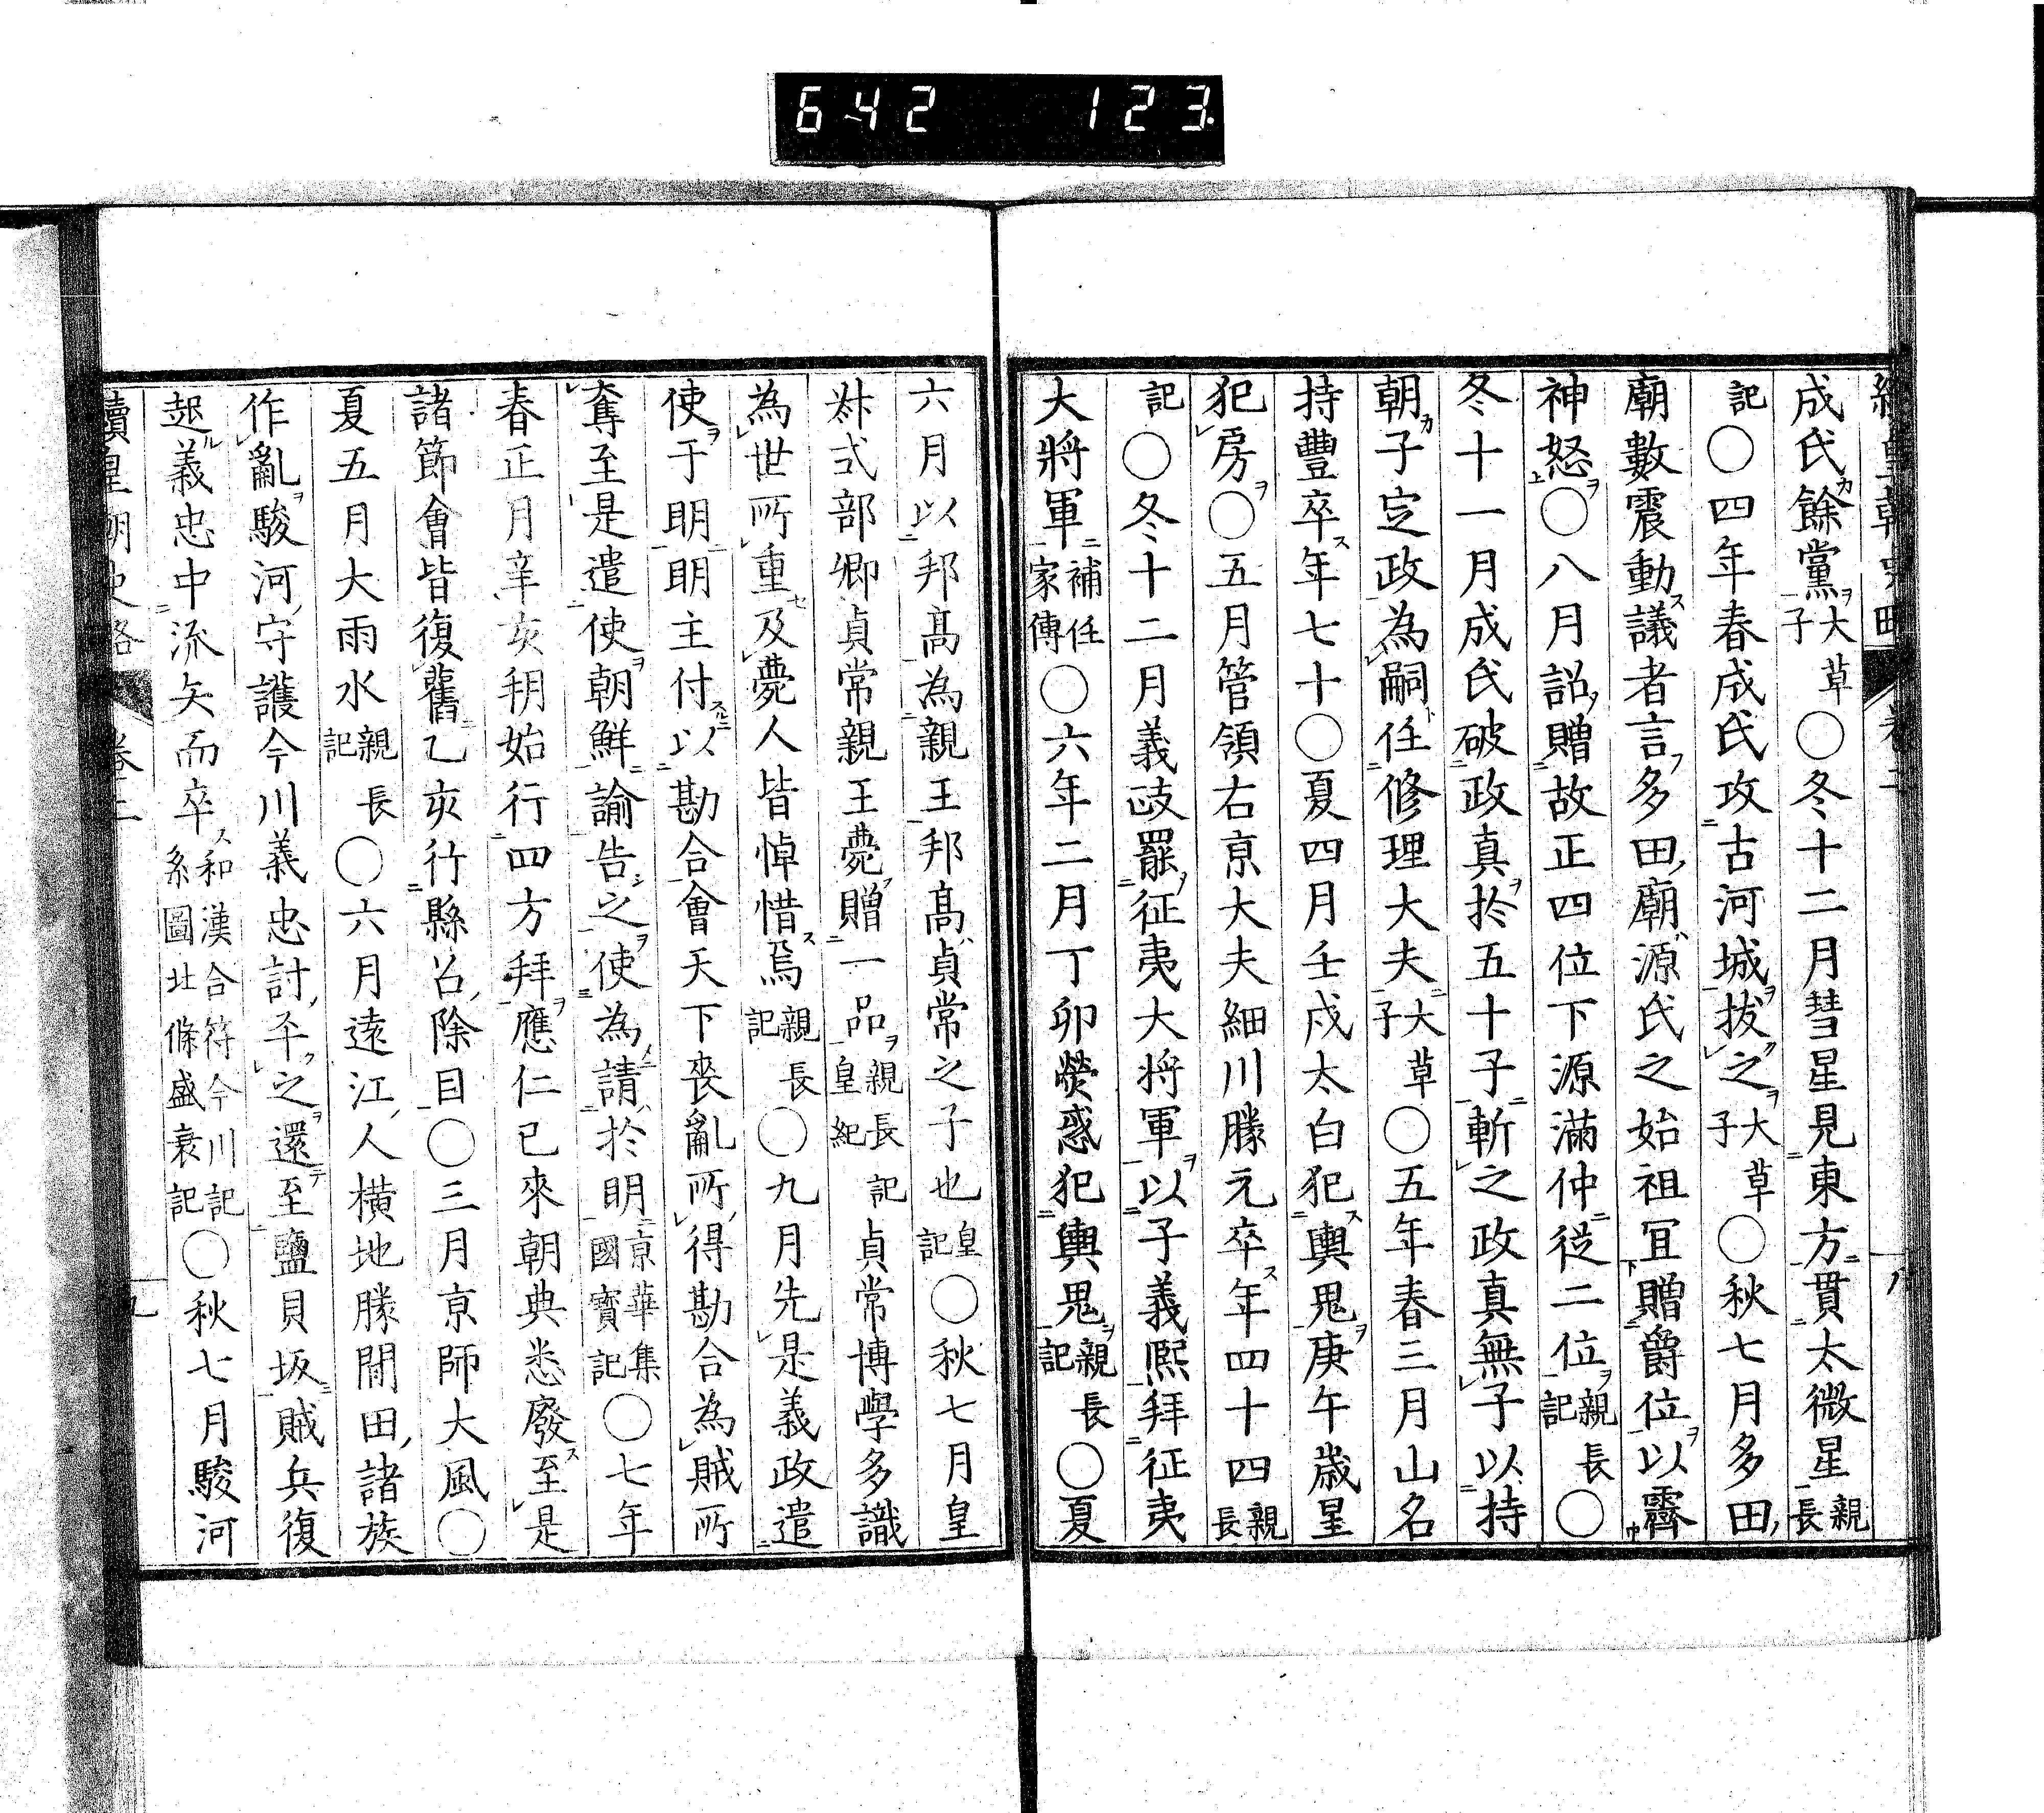 642 123
續皇朝史略 卷二 八
成氏餘黨大草子〇冬十二月彗星見東方貫太微星親長
記〇四年春成氏攻古河城拔之大草子〇秋七月多田
廟數震動議者言多田廟源氏之始祖宜贈爵位以霽
神怒〇八月詔贈故正四位下源滿仲從二位親長記〇
冬十一月成氏破政真於五十子斬之政真無子以持
朝子定政為嗣任修理大夫大草子〇五年春三月山名
持豐卒年七十〇夏四月壬戌太白犯輿鬼庚午歲星
犯房〇五月管領右京大夫細川勝元卒年四十四親長
記〇冬十二月義政罷征夷大將軍以子義熙拜征夷
大將軍補任家傳〇六年二月丁卯熒惑犯輿鬼親長記〇夏
六月以邦高為親王邦高貞常之子也皇記〇秋七月皇
叔式部卿貞常親王薨贈一品親長記皇紀貞常博學多識
為世所重及薨人皆悼惜焉親長記〇九月先是義政遣
使于明明主付以勘合會天下喪亂所得勘合為賊所
奪至是遣使朝鮮諭告之使為請於明京華集國寶記〇七年
春正月辛亥朔始行四方拜應仁已來朝典悉廢至是
諸節會皆復舊乙亥行縣召除目〇三月京師大風〇
夏五月大雨水親長記〇六月遠江人橫地勝間田諸族
作亂駿河守護今川義忠討平之還至鹽貝坂賊兵復
起義忠中流矢而卒和漢合符今川記系圖北條盛衰記〇秋七月駿河
續皇朝史略 卷二 九